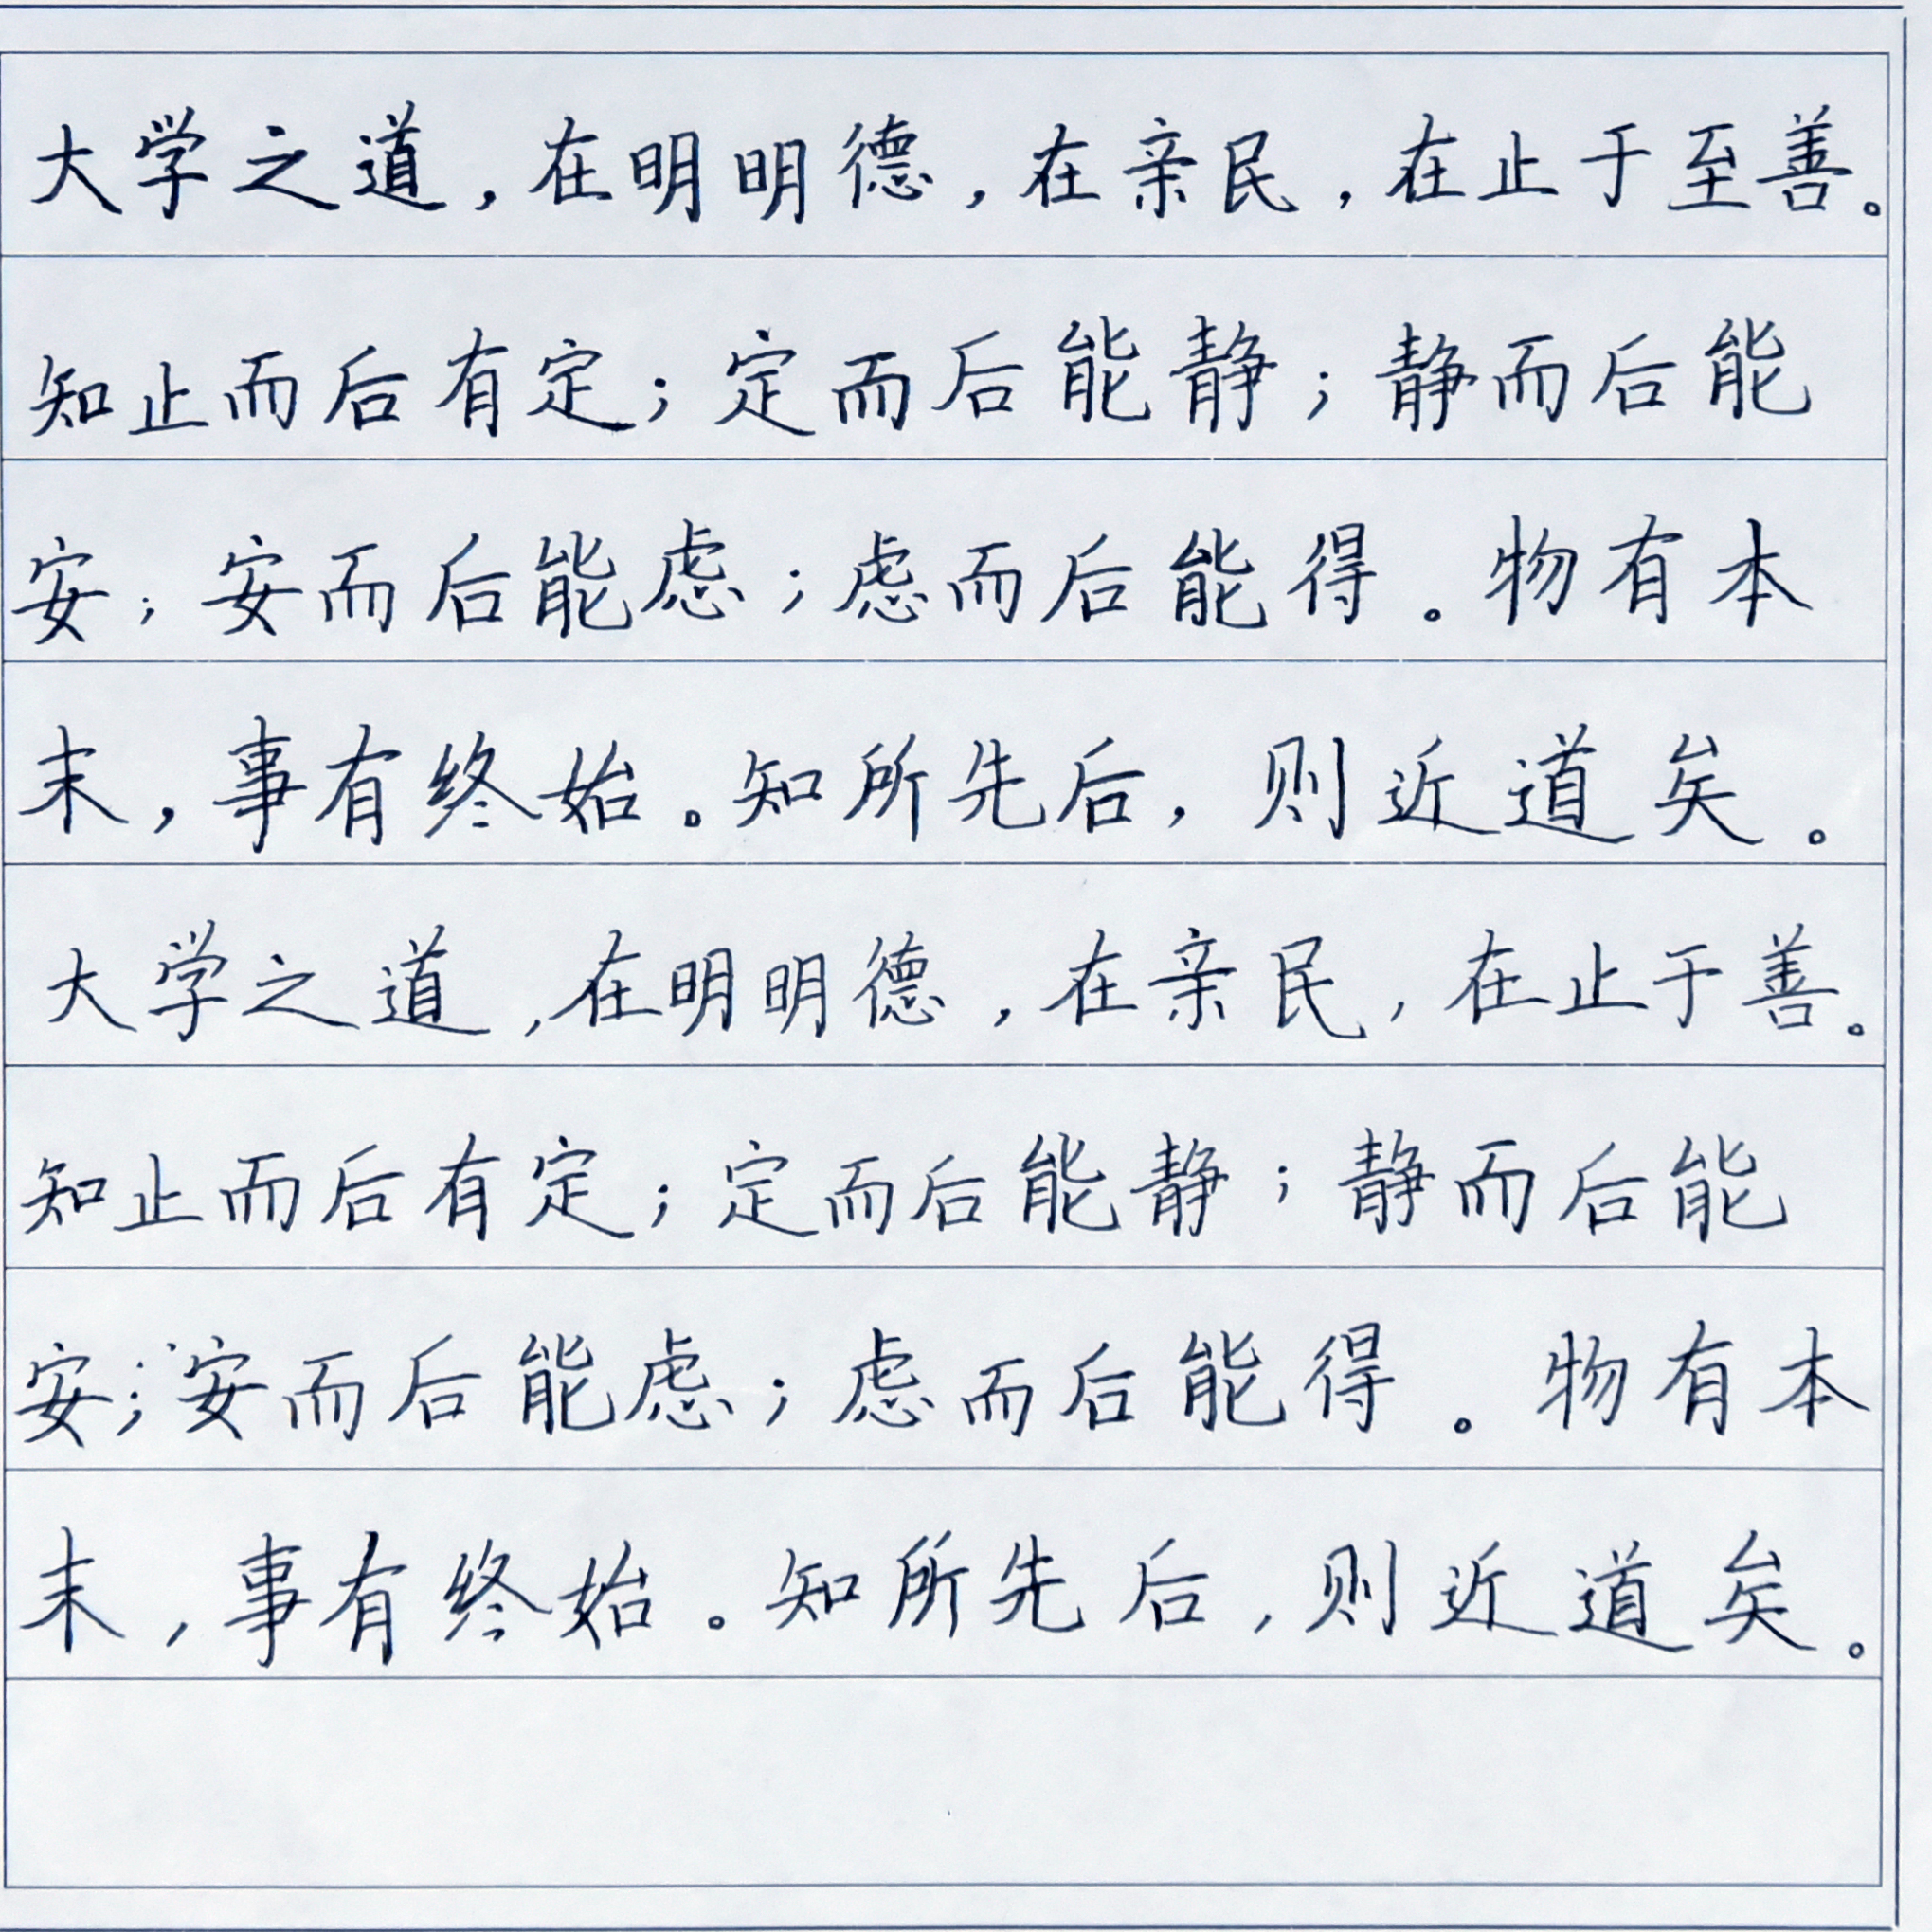 大学之道，在明明德，在亲民，在止于至善。
知止而后有定；定而后能静；静而后能
安；安而后能虑；虑而后能得。物有本
末，事有终始。知所先后，则近道矣。
大学之道，在明明德，在亲民，在止于善。
知止而后有定；定而后能静；静而后能
安；安而后能虑；虑而后能得。物有本
末，事有终始。知所先后，则近道矣。